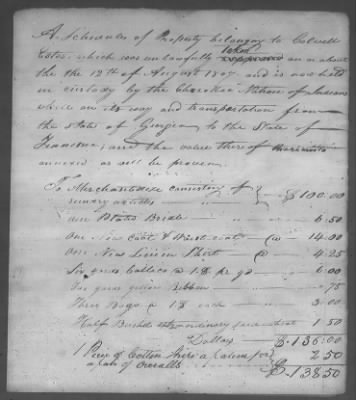 A Schedule of Property belonging to Colwell
Estes which was unlawfully taken on or about
the the 12th of August 1807 and is now held
in custody by the Cherokee Nation of Indians
while on its way and transportation from
the State of Georgia to the State of
Tennessee, and the value thereof
annexed as will be proven
To Merchandise consisting of
sundry articles } — $100.00
one Plated Bridle — " — 6.50
One New Coat & Waistcoat — @ — 14.00
One New Linnen Shirt — @ — 4.25
Six yards Callico @ 1$ pr yd — 6.00
Six yards green Ribbon — .75
Three Bags @ 1$ each — 3.00
Half Bushel extraordinary seed — 1.50
Dollars — $136.00
1 Piece of Cotton 2.50
a pair of Overalls
$138.50